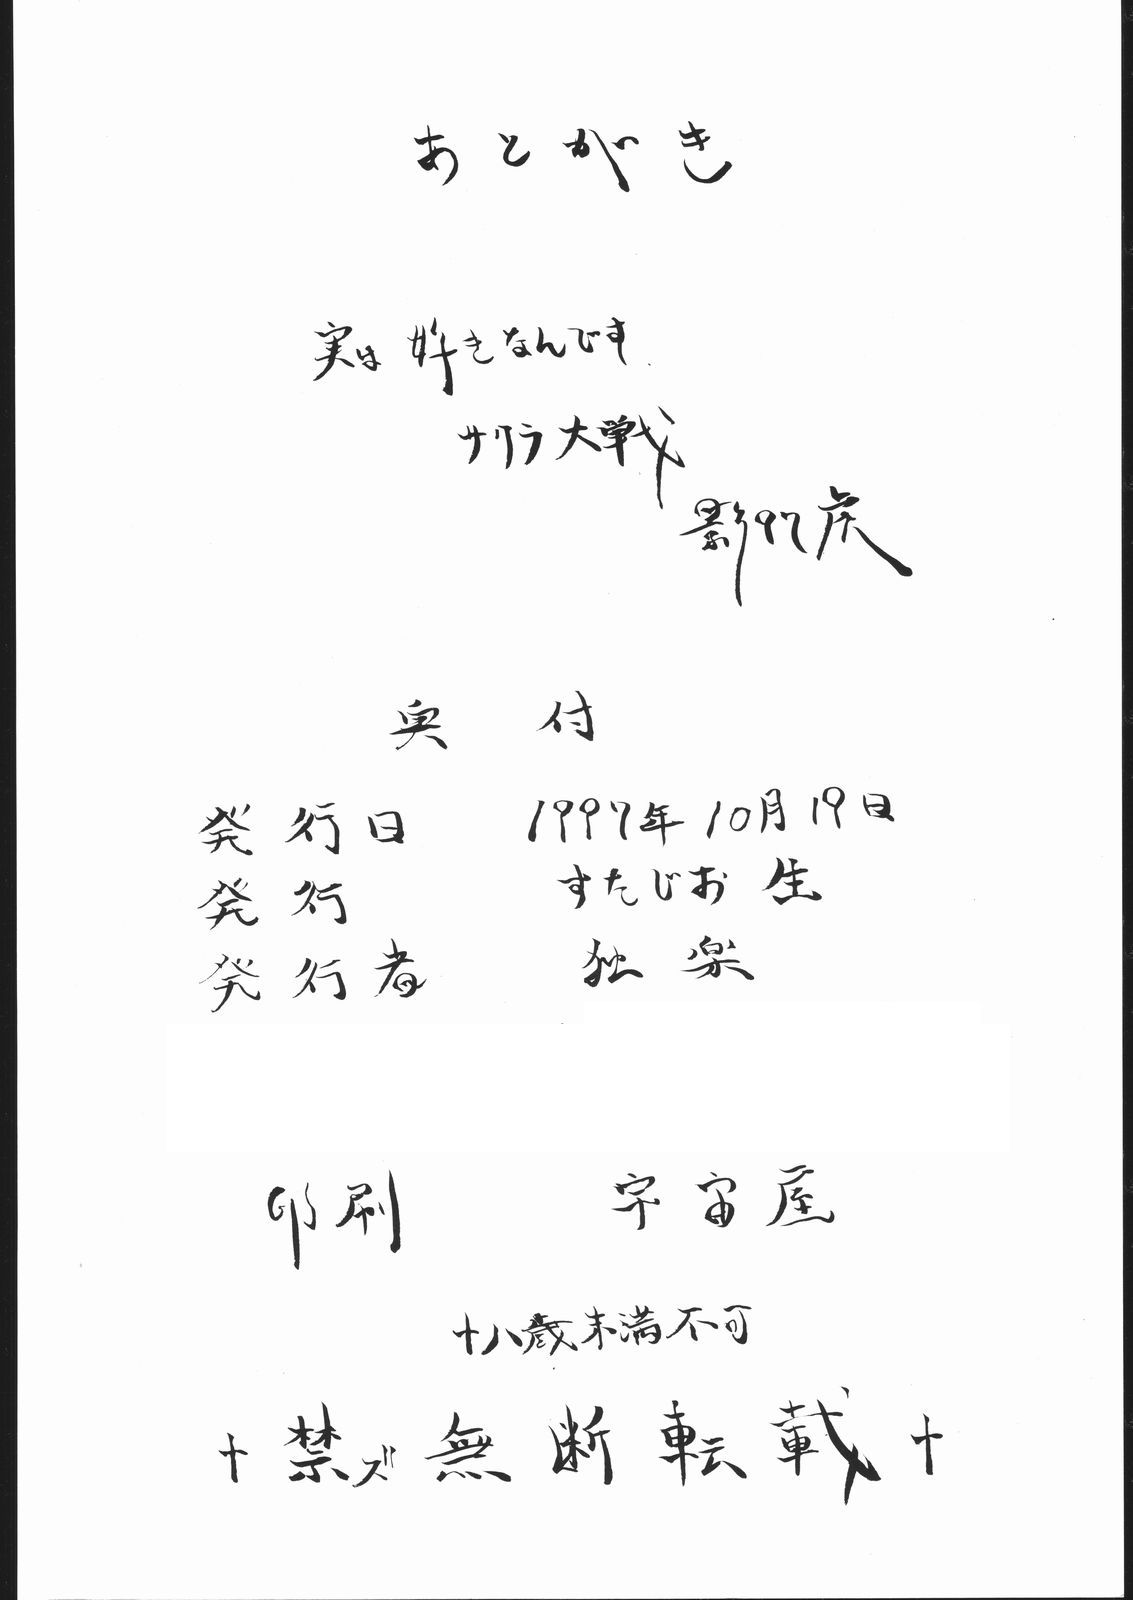 あとがき
実は好きなんです
サクラ大戦
影97虎
奥付
発行日 1997年10月19日
発行 すたじお生
発行者 独楽
印刷 宇宙屋
十八歳未満不可
† 禁ズ無断転載 †